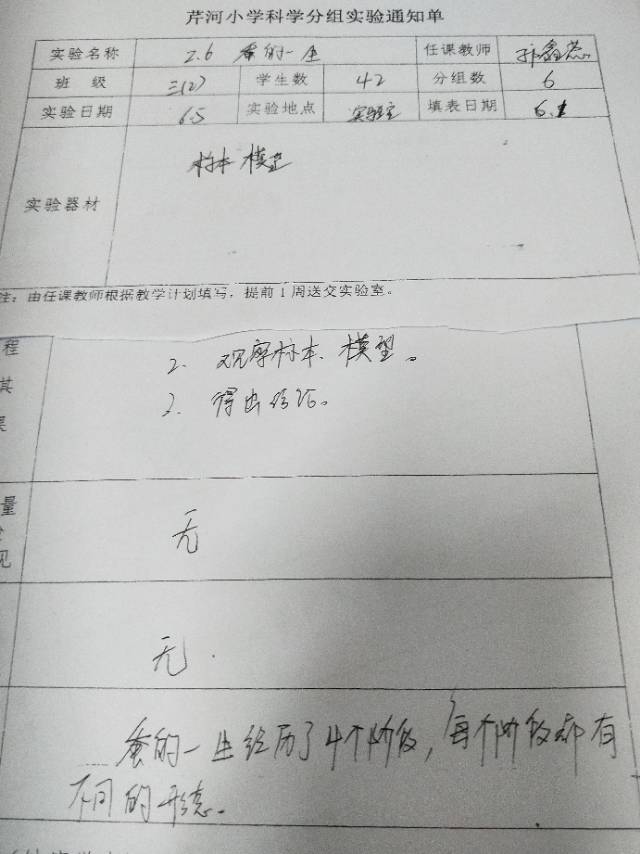 芹河小学科学分组实验通知单
实验名称 2.6 蚕的一生 任课教师
班 级 三(2) 学生数 42 分组数 6
实验日期 6.5 实验地点 实验室 填表日期 6.1
标本 模型
实验器材
注：由任课教师根据教学计划填写，提前1周送交实验室。
程
其
2. 观察标本、模型。
3. 得出结论。
量
见
无
无.
蚕的一生经历了4个阶段，每个阶段都有
不同的形态。